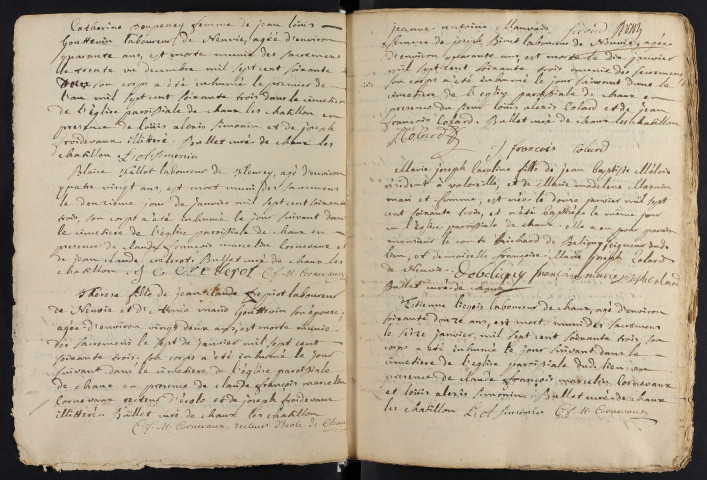 Catherine femme de jean louis
Gouttevin laboureur de Neuvie, agée d'environ
quarante ans, est morte munie des sacremens
le trente un decembre mil sept cent soixante
deux son corps a été inhumé le premier de
l'an mil sept cent soixante trois dans le cimetiere
de l'église paroissiale de chaux les chatillon en
presence de louis alexis simonin et de joseph
froidevaux illitteré. Ballet curé de chaux les
chatillon L: A: simonin
Blaise laboureur de fleurey, agé d'environ
quatre vingt ans, est mort muni des sacremens
le deuxieme jour de janvier mil sept cent soixante
trois, son corps a été inhumé le jour suivant dans
le cimetiere de l'église paroissiale de chaux en
presence de claude françois marcelin Cornevaux et
de jean claude Ballet curé de chaux les
chatillon C. f. M. Cornevaux
Therese fille de jean claude laboureur
de Neuvie et de Anne marie Gouttevin son epouse,
agée d'environ vingt deux ans, est morte munie
des sacremens le sept de janvier mil sept cent
soixante trois. son corps a été inhumé le jour
suivant dans le cimetiere de l'église paroissiale
de chaux en presence de claude françois marcelin
Cornevaux recteur d'école et de joseph froidevaux
illitteré Ballet curé de chaux les chatillon
C. f. M. Cornevaux recteur d'école de chaux
jeanne antoine Mauvais
femme de joseph Binet laboureur de Neuvie, agée
d'environ quarante ans, est morte le dix janvier
mil sept cent soixante trois munie des sacremens
son corps a été inhumé le jour suivant dans le
cimetiere de l'église paroissiale de chaux en
presence du sieur louis alexis Colard et de jean
françois Colard. Ballet curé de chaux les chatillon
Colard
j francois Colard
Marie joseph Caroline fille de jean baptiste
resident à valoreille, et de Marie madelene
mari et femme, est née le douze janvier mil sept
cent soixante trois, et a été baptisée le meme jour
en l'église paroissiale de chaux. elle a eu pour parein
monsieur le comte de Beligny seigneur dudit
lieu, et demoiselle françoise Marie joseph Colard
de Neuvie.
Ballet curé de chaux
Etienne laboureur de chaux, agé d'environ
soixante douze ans, est mort muni des sacremens
le seize janvier, mil sept cent soixante trois, son
corps a été inhumé le jour suivant dans le
cimetiere de l'église paroissiale dud. lieu, en
presence de claude françois marcelin Cornevaux
et louis alexis simonin Ballet curé de chaux
les chatillon L: A: simonin C. f. M. Cornevaux